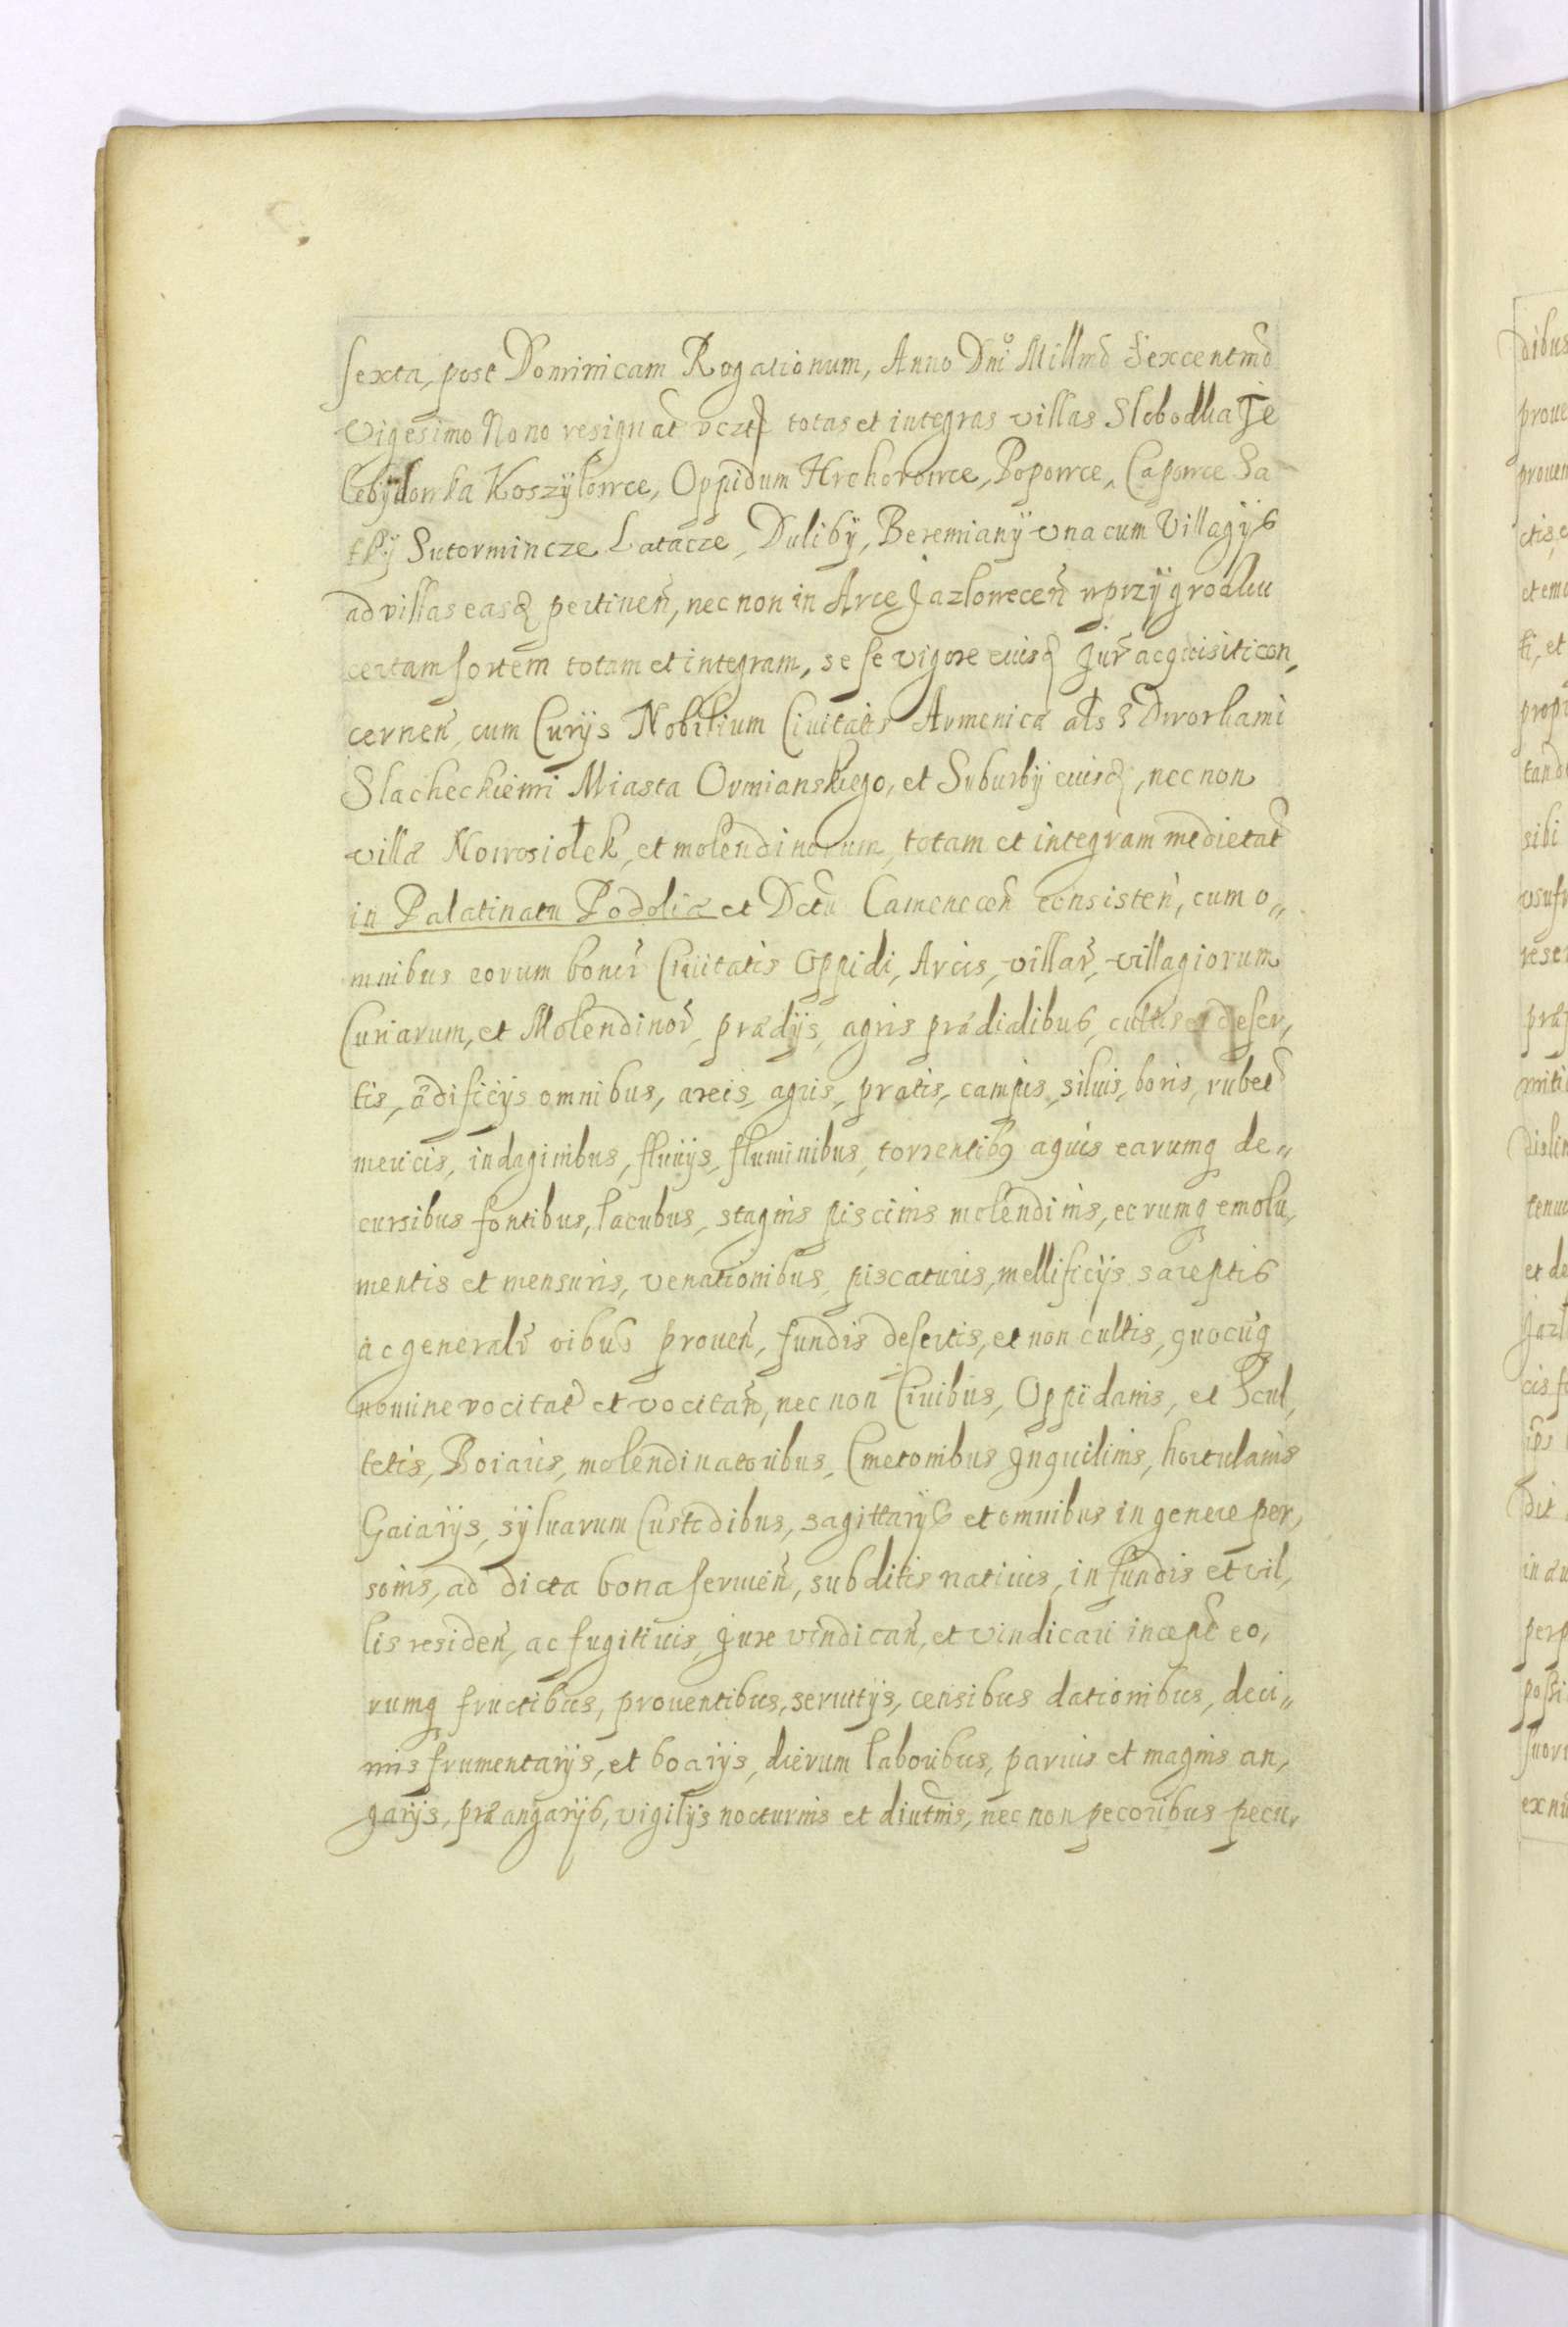 sexta, post Dominicam Rogationum, Anno Dnī Millmō Sexcentmō
Vigesimo Nono resignat totas et integras villas Slobodka Je
Lebydowka Koszylowce, Oppidum Hrehorowce, Popowce, Capowce Sa
tky Sutormincze Latacze, Duliby, Beremiany una cum Villagijs
ad villas easq pertineñ, nec non in Arce Jazlowceceñ w przygrodku
certam sortem totam et integram, se se vigore eiusq Jur acquisiti con,
cerneñ, cum Curijs Nobilium Ciuitatis Armenicæ als s Dworkami
Slacheckiemi Miasta Ormianskiego, et Suburbij eiusq, nec non
villæ Nowosiołek, et molendinorum, totam et integram medietat
in Palatinatu Podoliæ et Dctu Cameneceñ consisteñ, cum o„
mnibus eorum bonor Ciuitatis Oppidi, Arcis, villar, villagiorum
Curiarum, et Molendinor, prædijs, agris prædialibus, cultis et deser,
tis, ædificijs omnibus, areis, agris, pratis, campis, siluis, boris, rubet
mericis, indaginibus, fluuijs, fluminibus, torrentibq aquis earumq de„
cursibus fontibus, lacubus, stagnis piscinis molendinis, eorumq emolu,
mentis et mensuris, venationibus, piscaturis, mellificijs sareptis
ac generalr oibus proueñ, fundis desertis, et non cultis, quocuq
nomine vocitat et vocitañ, nec non Ciuibus, Oppidanis, et Scul,
tetis, Boiaris, molendinatoribus, Cmetonibus Inquilinis, hortulanis
Gaiarijs, syluarum Custodibus, sagittarijs et omnibus in genere per,
sonis, ad dicta bona seruieñ, subditis natiuis, in fundis et vil,
lis resideñ, ac fugitiuis, Jure vindicañ, et vindicari incept eo,
rumq fructibus, prouentibus, seruitijs, censibus dationibus, deci„
mis frumentarijs, et boarijs, dierum laboribus, paruis et magnis an,
garijs, præangarijs, vigilijs nocturnis et diutnis, nec non pecoribus pecu,